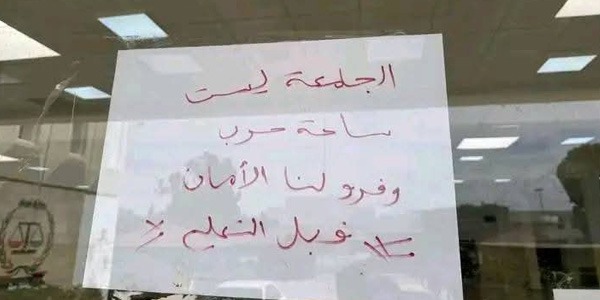 الجامعة ليست
ساحة حرب
وفرو لنا الأمان
التعليم